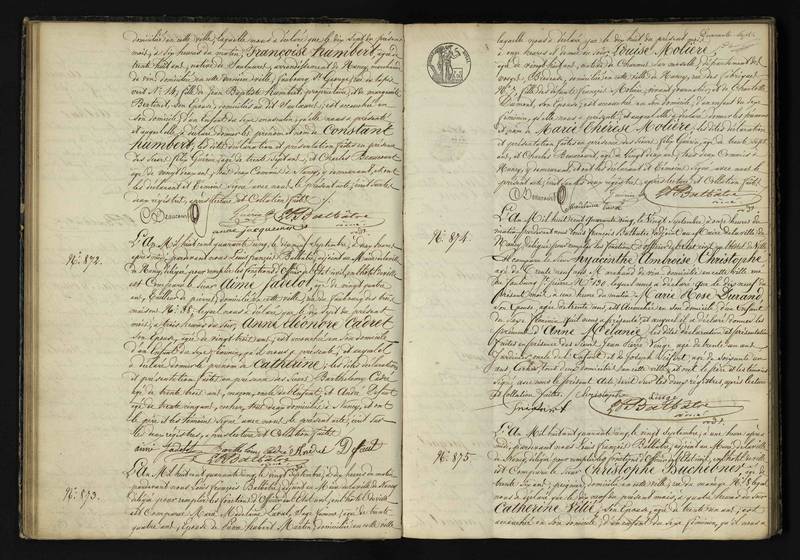 domiciliée en cette ville, laquelle nous a déclaré que le dix sept du présent
mois, à six heures du matin, Françoise Humbert, âgée de
trente huit ans, native de Saulxures, arrondissement de Nancy, marchande
de vin, domiciliée en cette dernière ville, faubourg St George,
No 14, fille de Jean Baptiste Humbert, propriétaire, et de Marguerite
son Epouse, domiciliés au dit Saulxures, est accouchée en
son domicile, d'un Enfant du Sexe masculin, qu'elle nous a présenté
et auquel elle a déclaré donner les prénom et nom de Constant
Humbert, les dites déclaration et présentation faites en présence
des Sieurs Félix Guérin, âgé de trente sept ans, et Charles Beaucourt
âgé de vingt ans, tous deux Commis à Nancy, y demeurant, et ont
les déclarant et témoins signé avec nous le présent acte, inscrit sur les
deux registres, après lecture et Collation faites.
Beaucourt
Guérin
Balbâtre
ainé
No. 872.
L'An Mil huit cent quarante cinq, le dix neuf Septembre, à
après midi, pardevant nous Louis François Balbâtre, adjoint au Maire de la ville
de Nancy, délégué pour remplir les fonctions d'Officier de l'Etat civil, en l'hôtel de ville
est Comparu le Sieur Aimé Jadelot, âgé de vingt quatre
ans, tailleur de pierres, domicilié en cette ville, rue du faubourg des trois
maisons No 38, lequel nous a déclaré que le dix sept du présent
mois, à trois heures du soir, Anne Eléonore Cadré,
son Epouse, âgée de vingt huit ans, est accouchée en son domicile
d'un Enfant du Sexe féminin, qu'il nous a présenté, et auquel il
a déclaré donner le prénom de Catherine; les dites déclaration
et présentation faites en présence des Sieurs Barthélemy Cadré
âgé de trente trois ans, maçon, oncle de l'Enfant, et André Défaut
âgé de trente cinq ans, cocher, tous deux domiciliés à Nancy, et ont
le père et les témoins signé avec nous le présent acte, inscrit sur
les deux registres, après lecture et Collation faites.
aimé Jadelot
Cadré
André Défaut
Balbâtre
No. 873.
L'An Mil huit cent quarante cinq, le vingt Septembre, à dix heures du matin
pardevant nous Louis François Balbâtre, adjoint au Maire de la ville de Nancy
délégué pour remplir les fonctions d'Officier de l'Etat civil, en l'hôtel de ville
est Comparue Marie Madeleine Laval, Sage femme, âgée de trente
quatre ans, Epouse de Jean Hubert Martin, domiciliée en cette ville
laquelle nous a déclaré, que le dix huit du présent mois
à onze heures et demie du soir, Louise Molière,
âgée de vingt huit ans, native de Charmes sur Moselle, département des
Vosges, Brodeuse, domiciliée en cette ville de Nancy, rue des fabriques
No 7, fille des défunts François Molière, et de Charlotte
Clément, son Epouse, est accouchée en son domicile, d'un enfant du Sexe
féminin, qu'elle nous a présenté, et auquel elle a déclaré donner les prénoms
et nom de Marie Thérèse Molière; les dites déclaration
et présentation faites en présence des Sieurs Félix Guérin, âgé de trente sept
ans, et Charles Beaucourt, âgé de vingt ans, tous deux Commis à
Nancy, y demeurant, et ont les déclarant et témoins signé avec nous le
présent acte, inscrit sur les deux registres, après lecture et Collation faites.
Beaucourt
Guérin
Madeleine Laval
Balbâtre
ainé
No. 874.
L'An Mil huit cent quarante cinq, le vingt Septembre, à onze heures du
matin, pardevant nous Louis François Balbâtre, adjoint au Maire de la ville de
Nancy, délégué pour remplir les fonctions d'Officier de l'Etat civil, en l'hôtel de ville
est comparu le Sieur Hyacinthe Ambroise Christophe
âgé de trente neuf ans, Marchand de vin, domicilié en cette ville, rue
du faubourg St pierre No 130, lequel nous a déclaré que le dix neuf du
présent mois, à une heure du matin, Marie Rose Durand,
son Epouse, âgée de trente neuf ans, est accouchée en son domicile, d'un Enfant
du Sexe féminin, qu'il nous a présenté, et auquel il a déclaré donner les
prénoms d'Anne Mélanie; les dites déclaration et présentation
faites en présence des Sieurs Jean Pierre âgé de trente un ans
Jardinier, oncle de l'Enfant, et de Joseph âgé de soixante un
ans, Cocher, tous deux domiciliés en cette ville, et ont le père et les témoins
signé avec nous le présent Acte inscrit sur les deux registres, après lecture
et Collation faites.
Christophe
Balbâtre
ainé
No. 875.
L'An Mil huit cent quarante cinq, le vingt Septembre, à une heure après
midi, pardevant nous Louis François Balbâtre, adjoint au Maire de la ville
de Nancy, délégué pour remplir les fonctions d'Officier de l'Etat civil, en l'hôtel de ville
est Comparu le Sieur Christophe Buchelner, âgé de
trente six ans, domicilié en cette ville, rue du manège No 15, lequel
nous a déclaré que le dix neuf du présent mois, à quatre heures du soir
Catherine Villié, son Epouse, âgée de trente un ans, est
accouchée en son domicile, d'un enfant du Sexe féminin, qu'il nous a